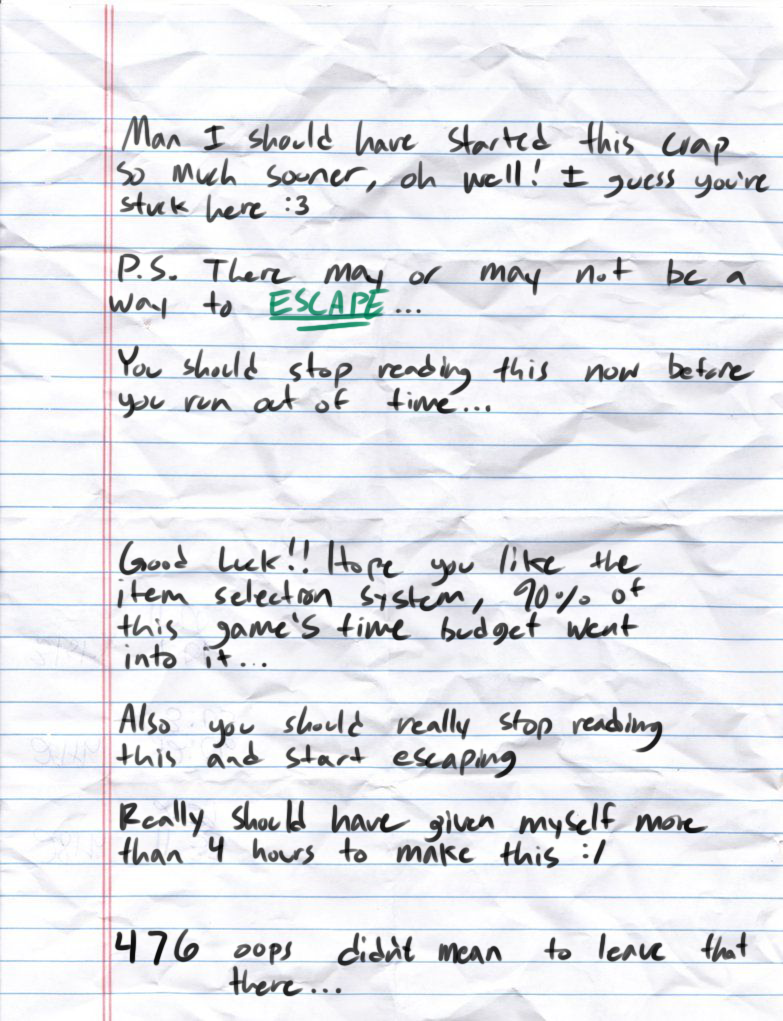 Man I should have started this crap
so much sooner, oh well! I guess you're
stuck here :3
P.S. There may or may not be a
way to ESCAPE...
You should stop reading this now before
you run out of time...
Good Luck!! Hope you like the
item selection system, 90% of
this game's time budget went
into it...
Also you should really stop reading
this and start escaping
Really should have given myself more
than 4 hours to make this :/
476 oops didn't mean to leave that
there...